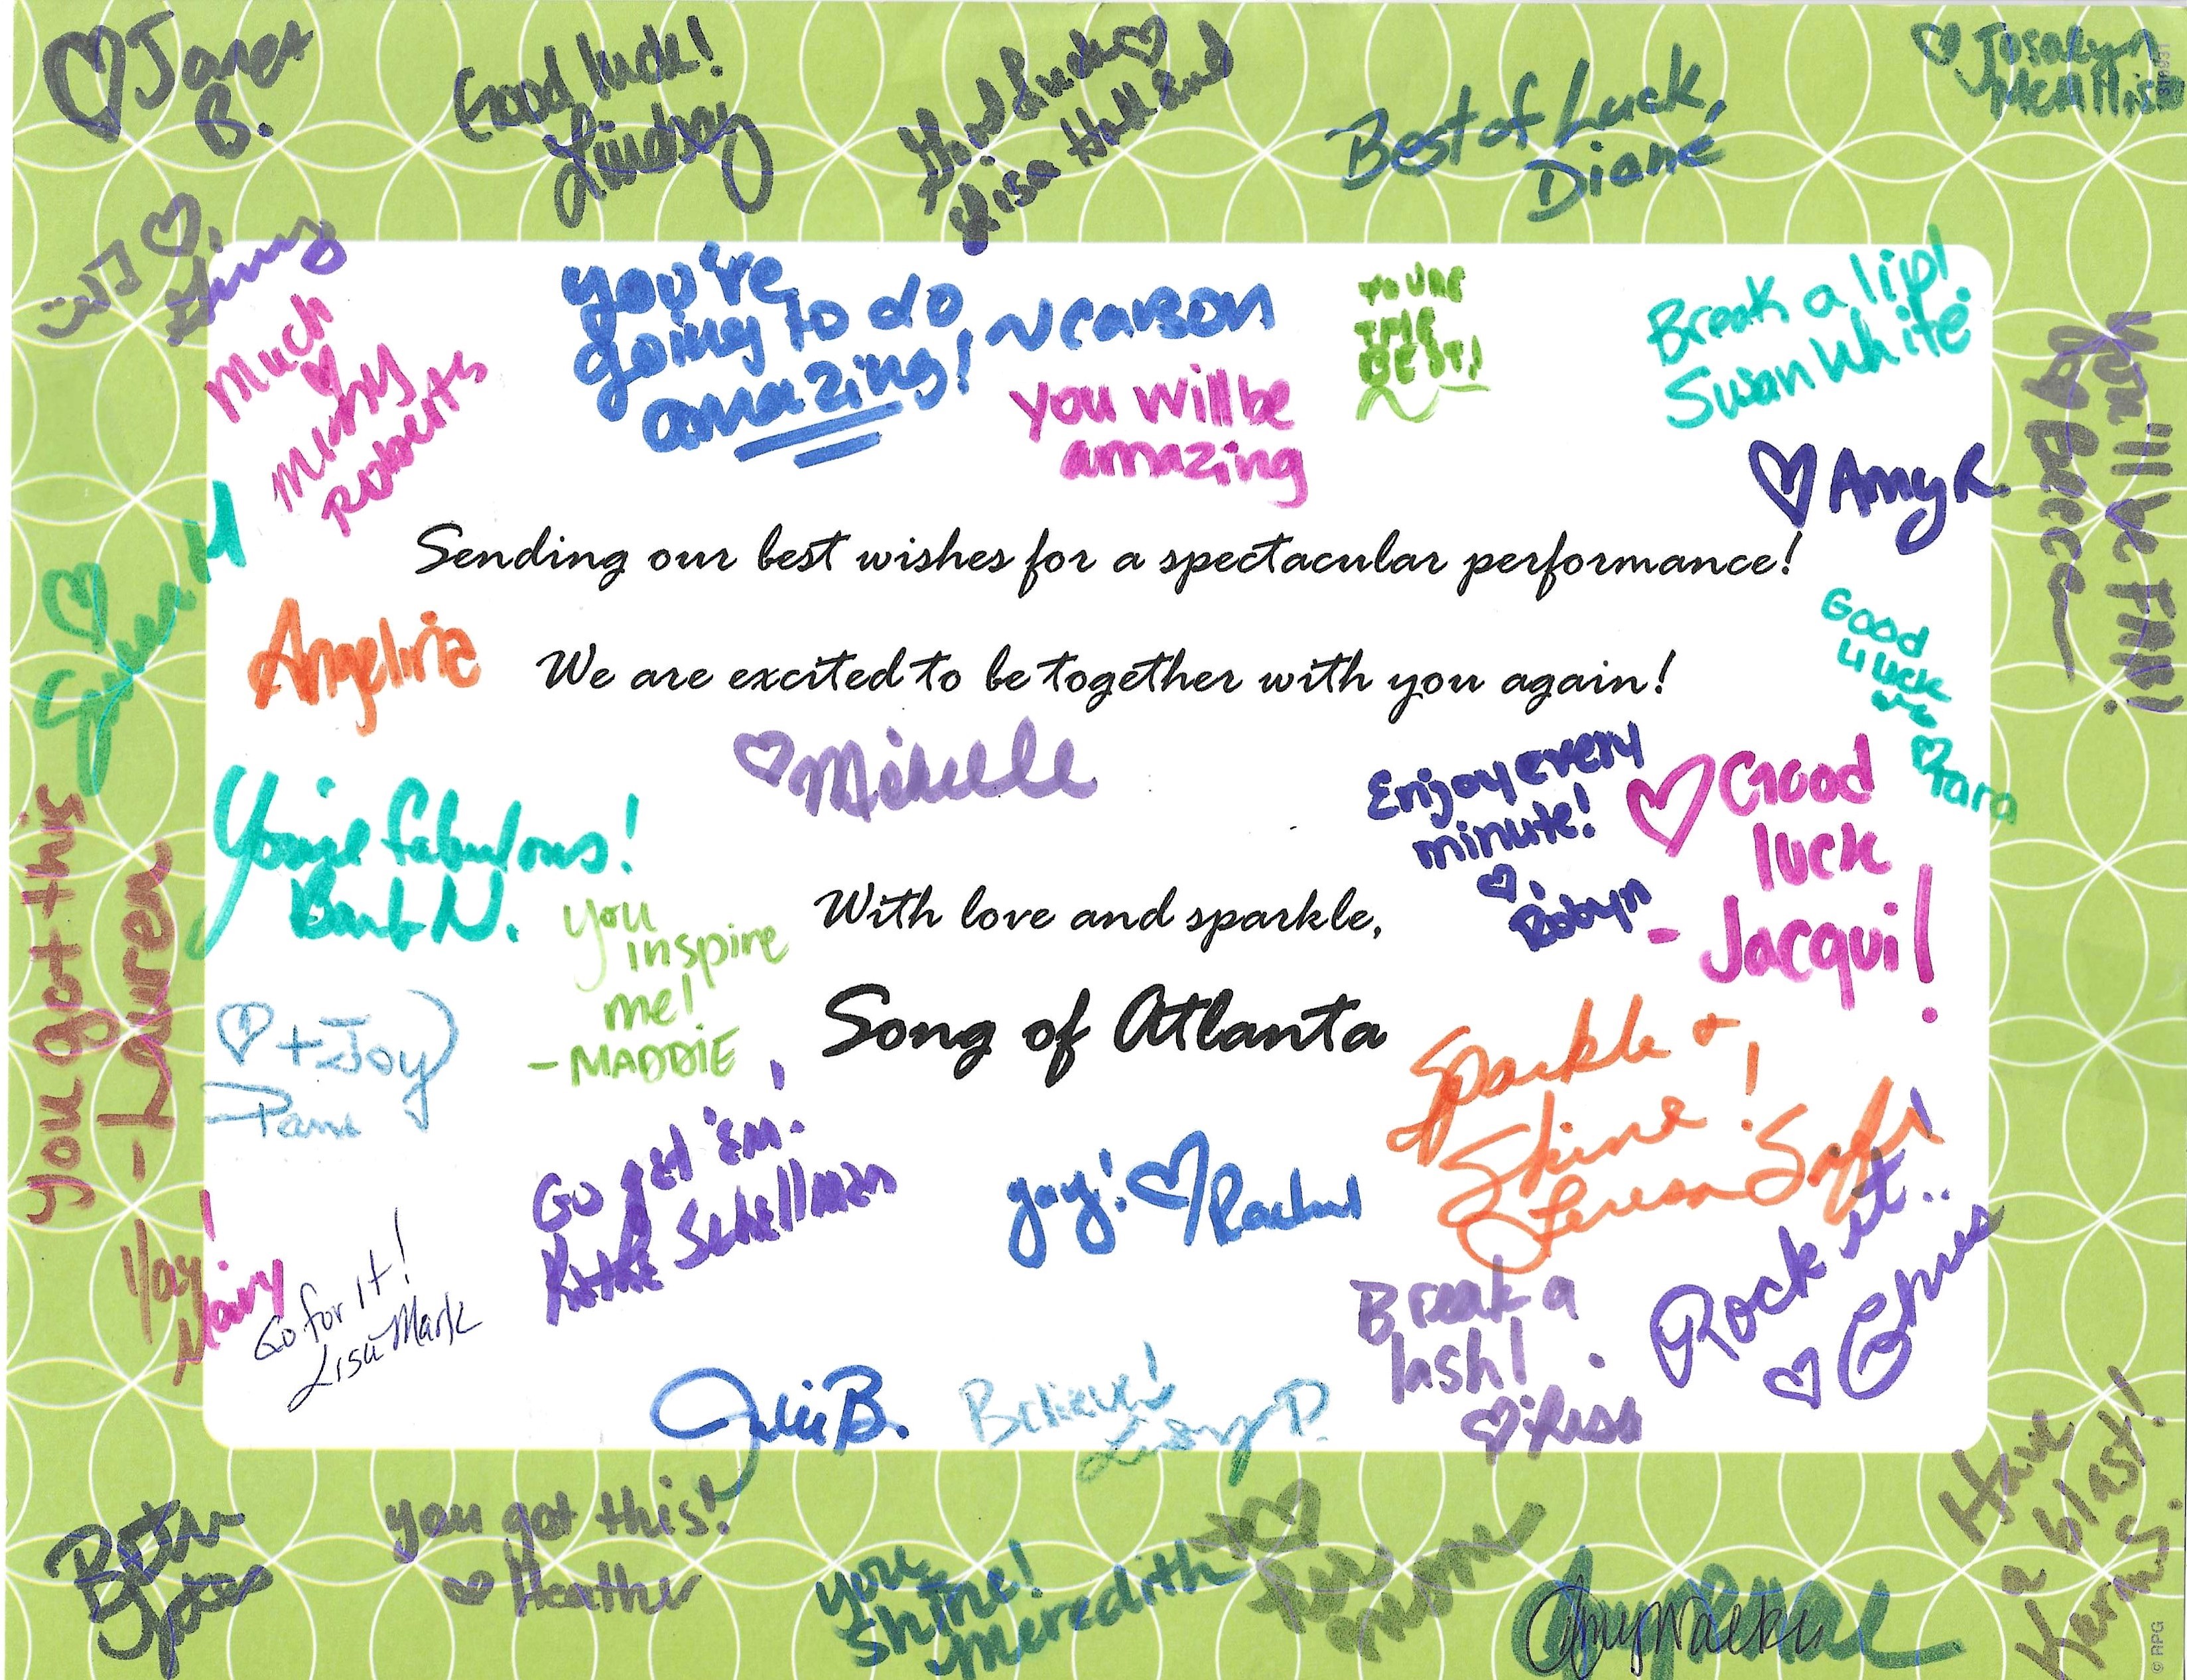 ♡ Janet
B.
Good luck!
Lindsay
Good Luck ♡
Lisa Holland
Best of Luck,
Diane
♡ Josalyn
McAllister
Much
♡
Missy
Roberts
you're
going to do
amazing! ~Carson
you will be
amazing
YOU'RE
THE
BEST!
Break a lip!
Susan White
♡ Amy R.
You'll be FAB!
Becca
Sending our best wishes for a spectacular performance!
Angelina
We are excited to be together with you again!
Good
Luck
♡ Tara
♡ Michelle
Enjoy every
minute!
♡,
Robyn
♡ Good
luck
- Jacqui!
You're fabulous!
Barb N.
you got this
- Lauren
you
inspire
me!
- MADDIE
With love and sparkle,
Song of Atlanta
♡ + Joy
Pam
Sparkle +
Shine!
Teresa
Go get 'em!
Schellman
yay! ♡ Rachel
Rock it..
♡
Yay!
Mary
Go for it!
Lisa Mark
Break a
lash!
♡ Lisa
Julie B.
Believe!
D.
Have
a blast!
Beth
you got this!
♡ Heather
you
shine!
Meredith
Amy Walker
© RPG